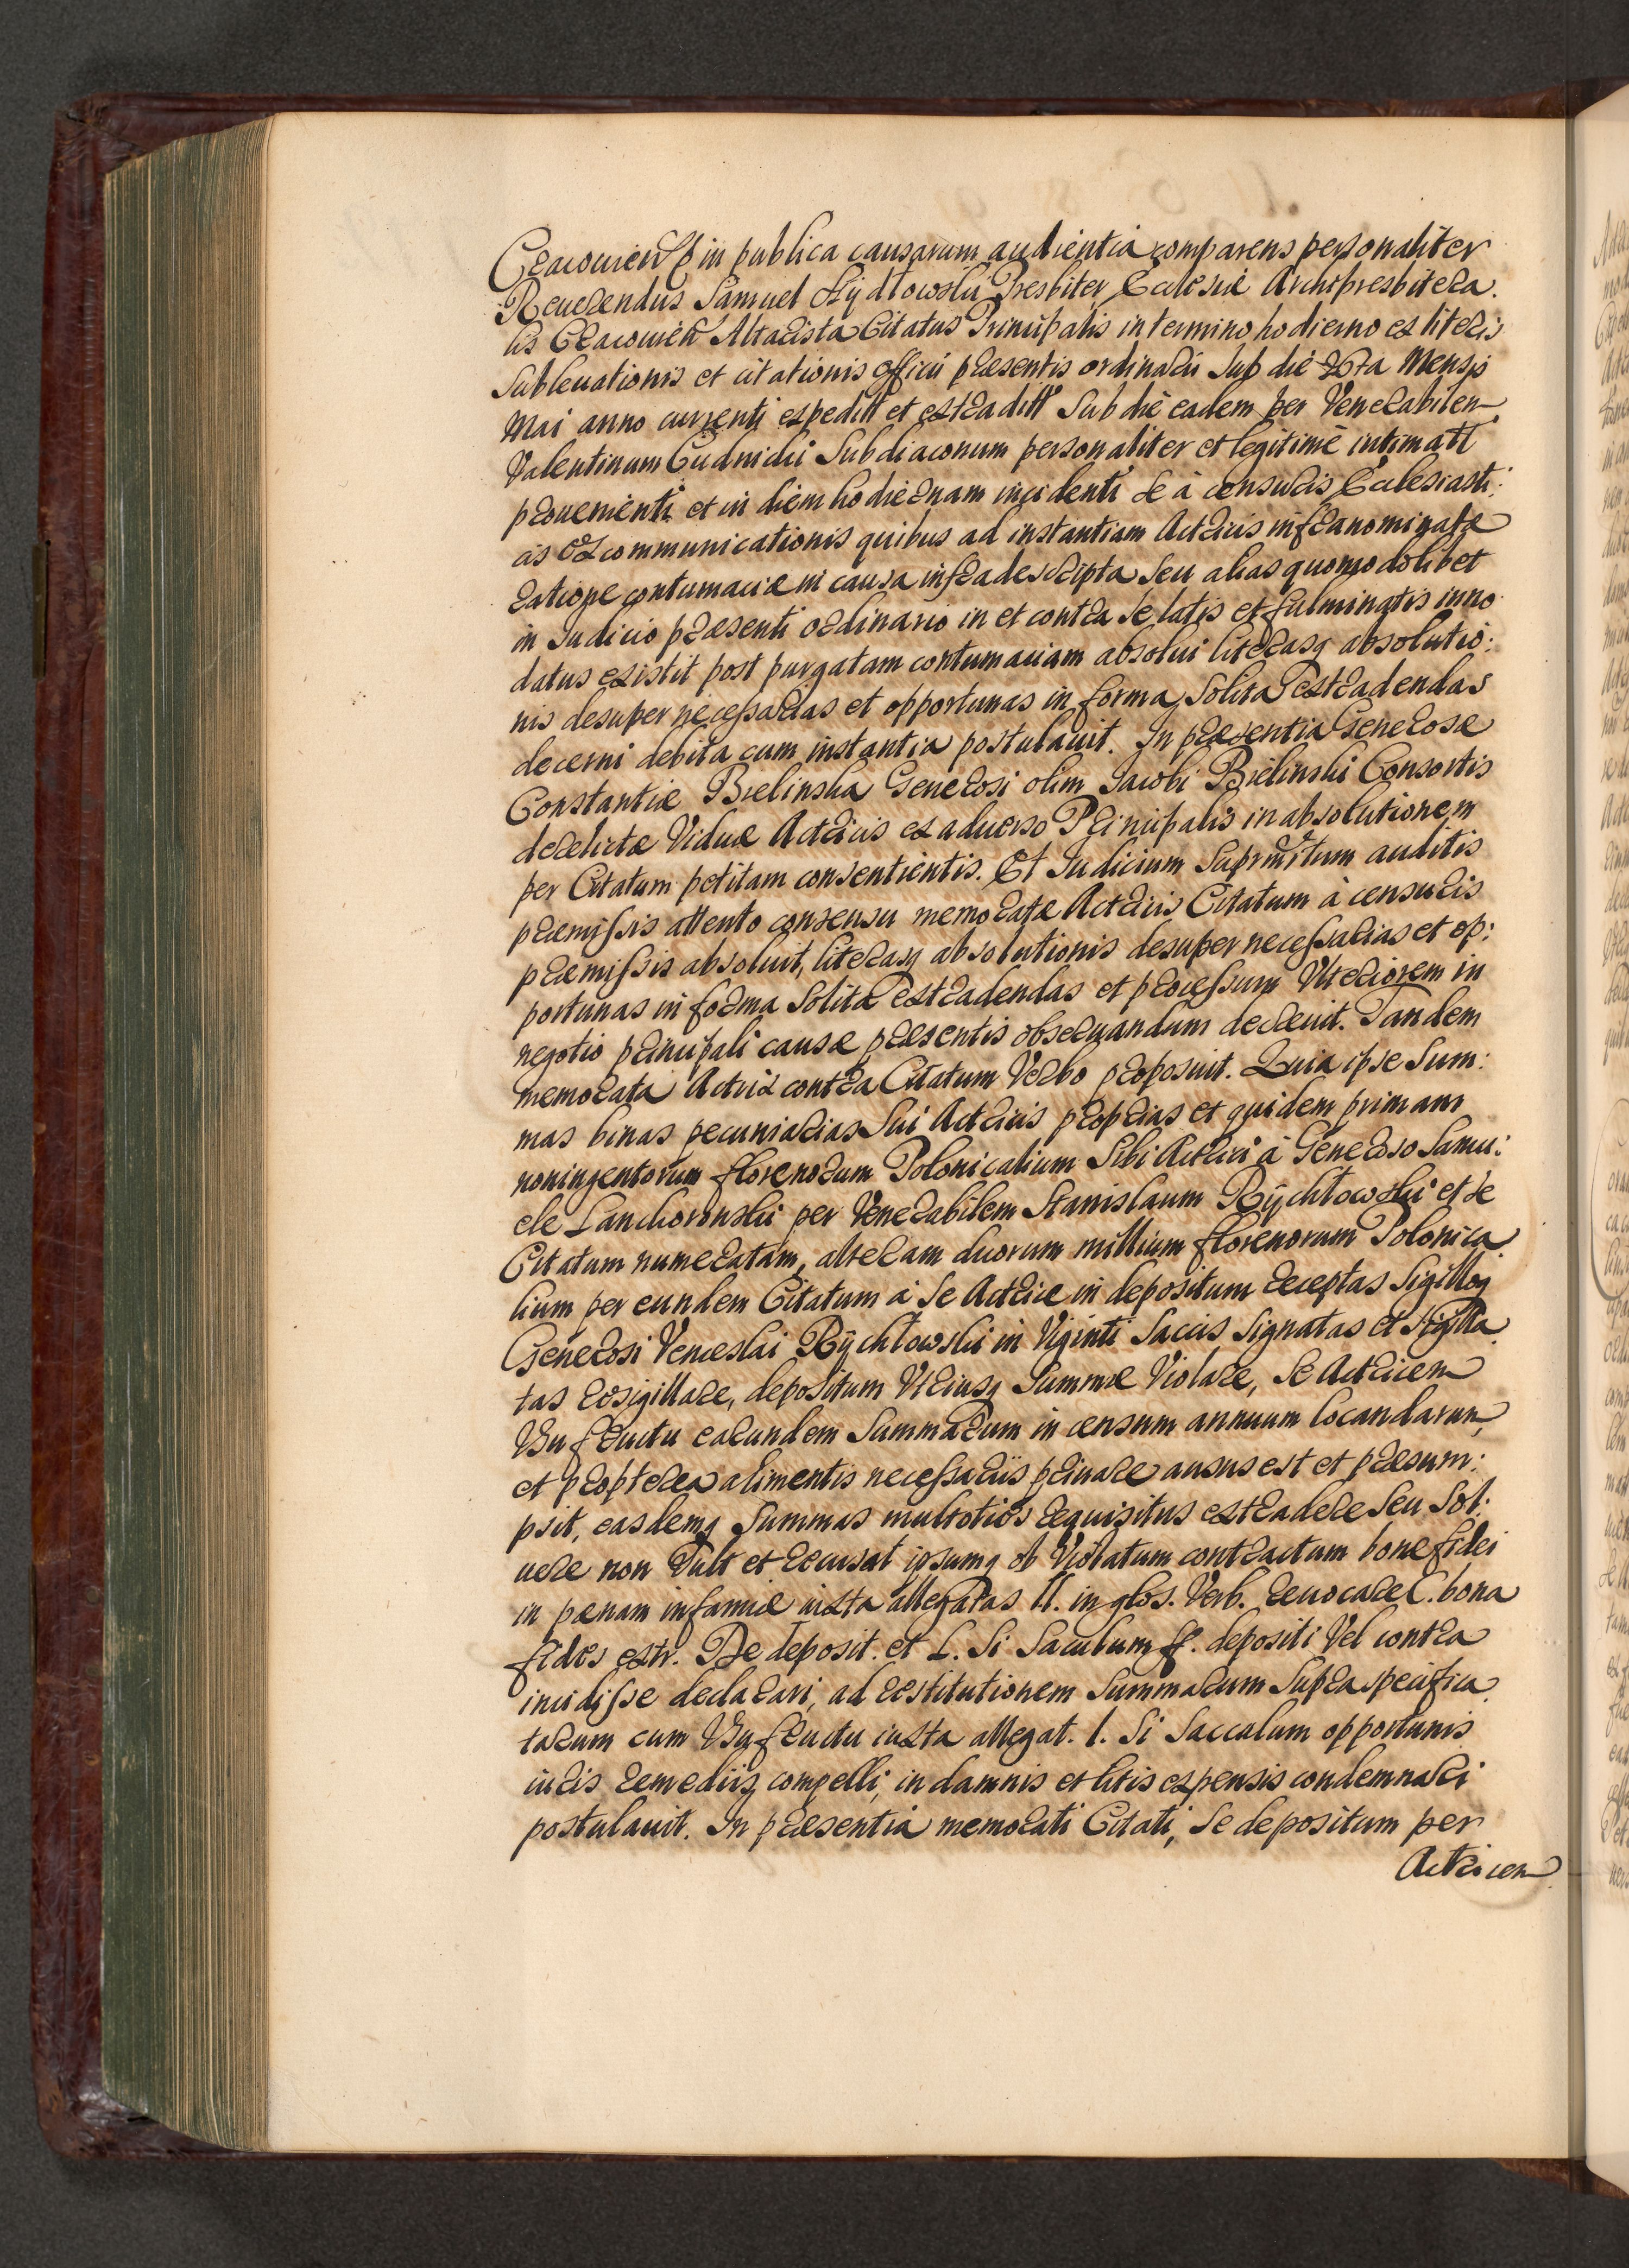 Cracouien in publica causarum audientia comparens personaliter
Reuerendus Samuel Szÿdłowski Presbiter Ecclesiæ Archipresbitera.
lis Cracouien Altarista Citatus Principalis in termino hodierno ex literis
Subleuationis et citationis officii præsentis ordinarii Sub die Mensis
Mai anno currenti expeditt et extraditt Sub die eadem per Venerabilem
Valentinum Cudnicki Subdiaconum personaliter et legitimè intimatt
prouenienti et in diem hodiernam incidenti Se à censuris Ecclesiasti:
cis excommunicationis quibus ad instantiam Actricis infranominatæ
ratione contumaciæ in causa infradescripta Seu alias quomodolibet
in Judicio præsenti ordinario in et contra Se latis et fulminatis inno
datus existit post purgatam contumaciam absolui literasq absolutio:
nis desuper necessarias et opportunas in forma Solita extradendas
decerni debita cum instantia postulauit. In præsentia Generosæ
Constantiæ Bielinska Generosi olim Jacobi Bielinski Consortis
derelictæ Viduæ Actricis ex aduerso Principalis in absolutionem
per Citatum petitam consentientis. Et Judicium auditis
præmissis attento consensu memoratæ Actricis Citatum à censuris
præmissis absoluit, literasq absolutionis desuper necessarias et op:
portunas in forma Solita extradendas et processum Vlteriorem in
negotio principali causæ præsentis obseruandum decreuit. Tandem
memorata Actrix contra Citatum Verbo proposuit. Quia ipse Sum:
mas binas pecuniarias Sui Actricis proprias et quidem primam
noningentorum florenorum Polonicalium Sibi Actrici à Generoso Samu:
ele Lanckoronski per Venerabilem Stanislaum Rÿchłowski et Se
Citatum numeratam, alteram duorum millium florenorum Polonica
lium per eundem Citatum à Se Actrice in depositum receptas Sigilloq
Generosi Venceslai Rÿchłowski in Viginti Saccis Signatas et Sigilla
tas resigillare, depositum Vtriusq Summæ Violare, Se Actricem
Vsufructu earundem Summarum in censum annuum locandarum
et propterea alimentis necessariis priuare ausus est et præsum:
psit, easdemq Summas multoties requisitus extradere Seu Sol:
uere non Vult et recusat ipsumq ob Violatum contractum bonæ fidei
in pænam infamiæ iuxta allegatas ll. in glos. Verb. reuocare C. bona
fides extr. De deposit. et L. Si Saculum ff. depositi Vel contra
incidisse declarari, ad restitutionem Summarum Supra specifica
tarum cum Vsufructu iuxta allegat. l. Si Sacculum opportunis
iuris remediis compelli, in damnis et litis expensis condemnari
postulauit. In præsentia memorati Citati, Se depositum per
Actricem